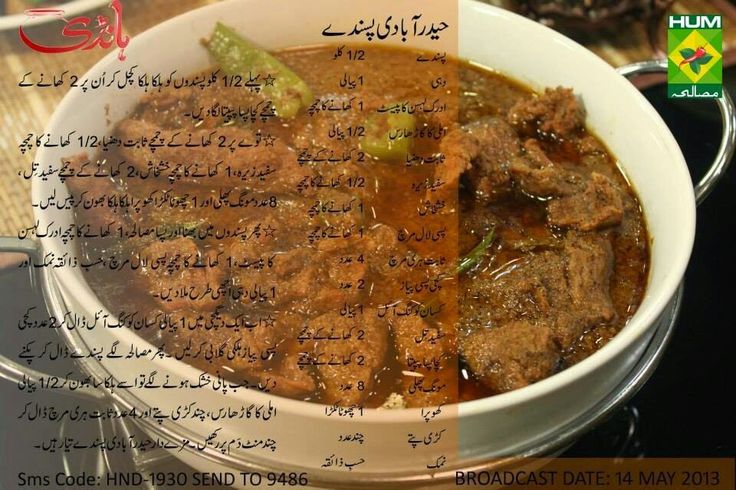 ہانڈی
حیدرآبادی پسندے
HUM
مصالحہ
پسندے 1/2 کلو
دہی 1 پیالی
ادرک لہسن کا پیسٹ 1 کھانے کا چمچہ
املی کا گاڑھا رس 1/2 پیالی
ثابت دھنیا 2 کھانے کے چمچے
سفید زیرہ 1/2 کھانے کا چمچہ
خشخاش 1 کھانے کا چمچہ
پسی لال مرچ 1 کھانے کا چمچہ
ثابت ہری مرچ 4 عدد
کچی پسی پیاز 2 عدد
کسان کوکنگ آئل 1 پیالی
سفید تِل 2 کھانے کے چمچے
کچا پسا پپیتا 2 کھانے کے چمچے
مونگ پھلی 8 عدد
کھوپرا 1 چھوٹا ٹکڑا
کڑی پتے چند عدد
نمک حسب ذائقہ
☆پہلے 1/2 کلو پسندوں کو ہلکا ہلکا کچل کر اُن پر 2 کھانے کے
چمچے کچا پسا پپیتا لگا دیں۔
☆توے پر 2 کھانے کے چمچے ثابت دھنیا، 1/2 کھانے کا چمچہ
سفید زیرہ، 1 کھانے کا چمچہ خشخاش، 2 کھانے کے چمچے سفید تِل،
8 عدد مونگ پھلی اور 1 چھوٹا ٹکڑا کھوپرا ہلکا ہلکا بھون کر پیس لیں۔
☆پھر پسندوں میں بھنا اور پسا مصالحہ، 1 کھانے کا چمچہ ادرک لہسن
کا پیسٹ، 1 کھانے کا چمچہ پسی لال مرچ، حسب ذائقہ نمک اور
1 پیالی دہی اچھی طرح ملا دیں۔
☆اب ایک دیگچی میں 1 پیالی کسان کوکنگ آئل ڈال کر 2 عدد کچی
پسی پیاز ہلکی گلابی کر لیں۔ پھر مصالحہ لگے پسندے ڈال کر پکنے
دیں۔ جب پانی خشک ہونے لگے تو اسے ہلکا سا بھون کر 1/2 پیالی
املی کا گاڑھا رس، چند کڑی پتے اور 4 عدد ثابت ہری مرچ ڈال کر
چند منٹ دَم پر رکھیں۔ مزے دار حیدرآبادی پسندے تیار ہیں۔
Sms Code: HND-1930 SEND TO 9486
BROADCAST DATE: 14 MAY 2013